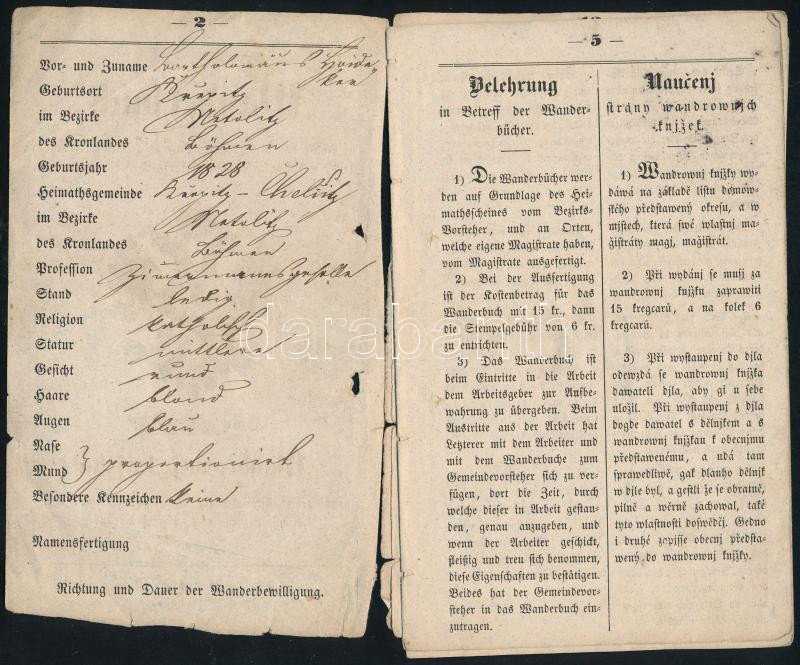 — 2 —
Vor- und Zuname Bartholomäus Haide-
ker
Geburtsort Krepitz
im Bezirke Netolitz
des Kronlandes Böhmen
Geburtsjahr 1828
Heimathsgemeinde Krepitz – Chelčitz
im Bezirke Netolitz
des Kronlandes Böhmen
Profession Zimmermannsgeselle
Stand ledig
Religion katholisch
Statur mittlere
Gesicht rund
Haare blond
Augen blau
Nase
Mund } proportionirt
Besondere Kennzeichen keine
Namensfertigung
Richtung und Dauer der Wanderbewilligung.
— 5 —
Belehrung
in Betreff der Wander-
bücher.
1) Die Wanderbücher wer-
den auf Grundlage des Hei-
mathsscheines vom Bezirks-
Vorsteher, und an Orten,
welche eigene Magistrate haben,
vom Magistrate ausgefertigt.
2) Bei der Ausfertigung
ist der Kostenbetrag für das
Wanderbuch mit 15 kr., dann
die Stempelgebühr von 6 kr.
zu entrichten.
3) Das Wanderbuch ist
beim Eintritte in die Arbeit
dem Arbeitsgeber zur Aufbe-
wahrung zu übergeben. Beim
Austritte aus der Arbeit hat
Letzterer mit dem Arbeiter und
mit dem Wanderbuche zum
Gemeindevorsteher sich zu ver-
fügen, dort die Zeit, durch
welche dieser in Arbeit gestan-
den, genau anzugeben, und
wenn der Arbeiter geschickt,
fleißig und treu sich benommen,
diese Eigenschaften zu bestätigen.
Beides hat der Gemeindevor-
steher in das Wanderbuch ein-
zutragen.
Naučenj
strany wandrownjch
knjžek.
1) Wandrownj knjžky wy-
dáwá na základě listu domow-
ského představený okresu, a w
mjstech, která swé wlastnj ma-
gistráty magj, magistrát.
2) Při wydánj se musj za
wandrownj knjžku zaprawiti
15 kregcarů, a na kolek 6
kregcarů.
3) Při wstaupenj do djla
odewzdá se wandrownj knjžka
dawateli djla, aby gi u sebe
uložil. Při wystaupenj z djla
dogde dawatel s dělnjkem a s
wandrownj knjžkau k obecnjmu
představenému, a udá tam
sprawedliwě, gak dlauho dělnjk
w djle byl, a gestli že se obratně,
pilně a wěrně zachowal, také
tyto wlastnosti doswědčj. Gedno
i druhé zapjsse obecnj předsta-
wený do wandrownj knjžky.
darabanth